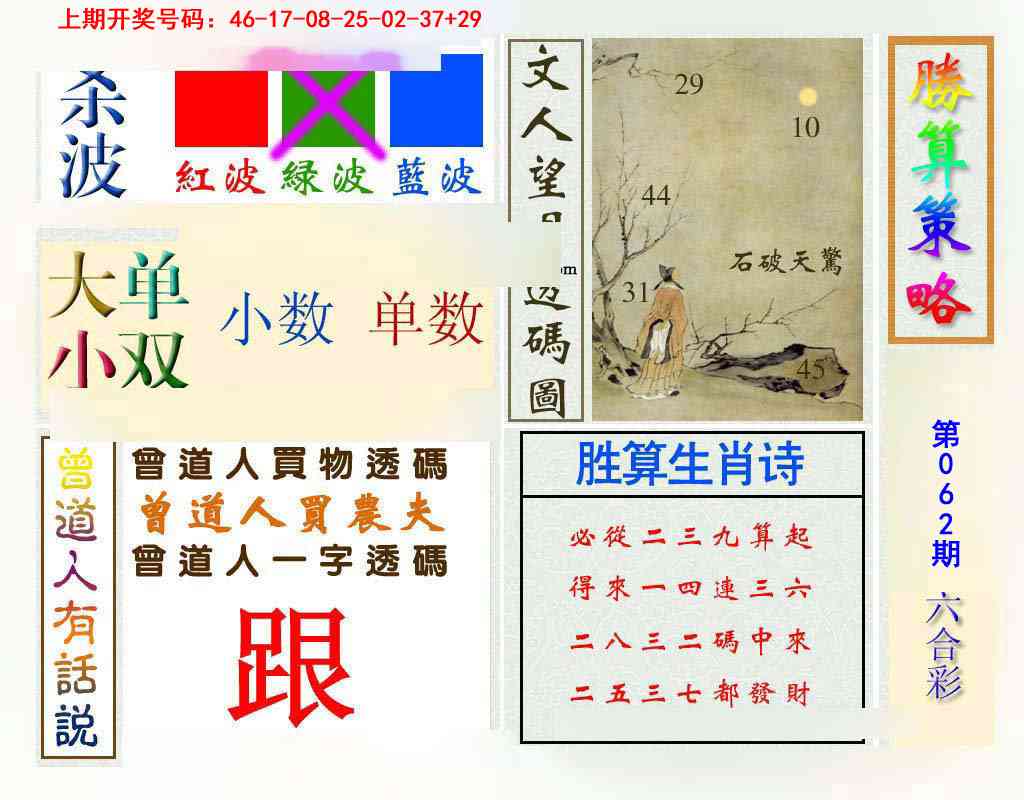 上期开奖号码：46-17-08-25-02-37+29
杀波
紅波 緑波 藍波
大单
小双
小数 单数
文人望月透碼圖
29
10
44
石破天驚
31
45
勝算策略
第062期
六合彩
曾道人有話説
曾道人買物透碼
曾道人買農夫
曾道人一字透碼
跟
胜算生肖诗
必從二三九算起
得來一四連三六
二八三二碼中來
二五三七都發財